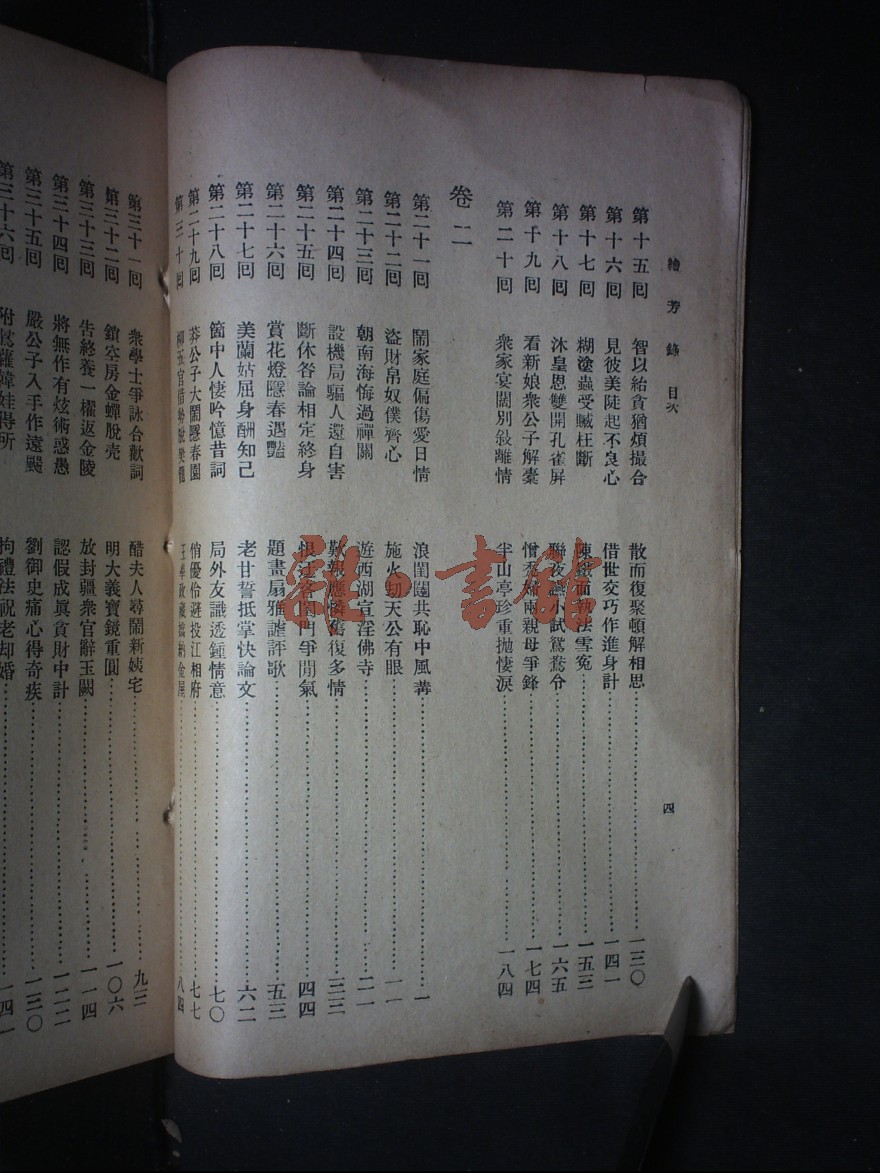 繪芳錄 目次
四
第十五囘 智以給貪猶煩撮合 散而復聚頓解相思 一三〇
第十六囘 見彼美陡起不良心 借世交巧作進身計 一四一
第十七囘 糊塗蟲受贓枉斷 陳鐵面執法雪寃 一五三
第十八囘 沐皇恩雙開孔雀屏 聯夜 小試鴛鴦令 一六五
第十九囘 看新娘衆公子解囊 憎 兩親母爭鋒 一七四
第二十囘 衆家宴闊別敍離情 半山亭珍重拋悽淚 一八四
卷二
第二十一囘 鬧家庭偏傷愛日情 浪閨闥共恥中風冓 一
第二十二囘 盜財帛奴僕齊心 施火刧天公有眼 一一
第二十三囘 朝南海悔過禪關 遊西湖宣淫佛寺 二一
第二十四囘 設機局驅人還自害 歎報應憐舊復多情 三三
第二十五囘 斷休咎論相定終身 恨 吝閉門爭閒氣 四四
第二十六囘 賞花燈隱春遇豔 題畫扇雅謔評歌 五三
第二十七囘 美蘭姑屈身酬知己 老甘誓抵掌快論文 六二
第二十八囘 箇中人悽吟憶昔詞 局外友識透鍾情意 七〇
第二十九囘 莽公子大鬧隱春園 俏優伶避投江相府 七七
第三十囘 柳五官借 脫樊籠 王 政 納金屋 八四
第三十一囘 衆學士爭詠合歡詞 醋夫人尋鬧新姨宅 九三
第三十二囘 鎖空房金蟬脫壳 明大義寶鏡重圓 一〇六
第三十三囘 告終養一櫂返金陵 放封疆衆官辭玉闕 一一四
第三十四囘 將無作有炫術惑愚 認假成眞貪財中計 一二二
第三十五囘 嚴公子入手作遠颺 劉御史痛心得奇疾 一三〇
第三十六囘 附蔦蘿婢娃得所 拘禮法祝老却婚 一四一
雜·書館